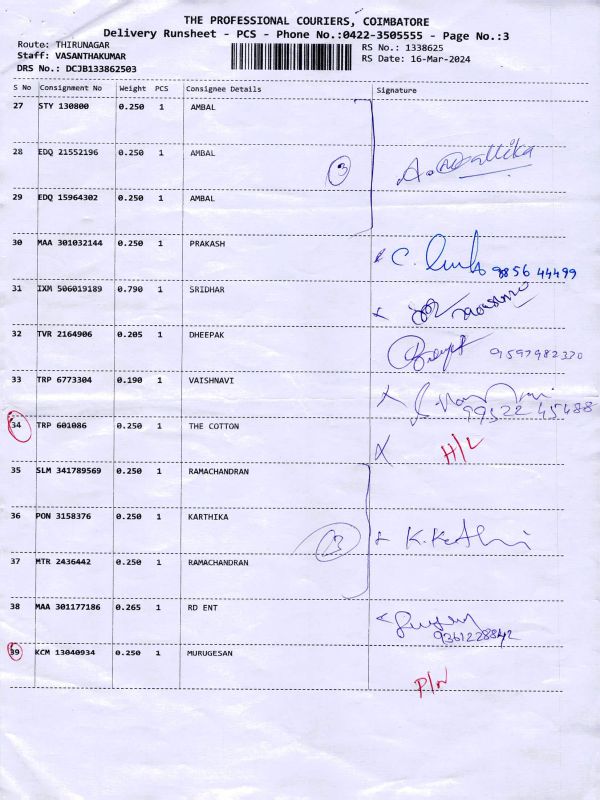 THE PROFESSIONAL COURIERS, COIMBATORE
Delivery Runsheet - PCS - Phone No.:0422-3505555 - Page No.:3
Route: THIRUNAGAR RS No.: 1338625
Staff: VASANTHAKUMAR RS Date: 16-Mar-2024
DRS No.: DCJB133862503
S No Consignment No Weight PCS Consignee Details Signature
27 STY 130800 0.250 1 AMBAL
28 EDQ 21552196 0.250 1 AMBAL 3
29 EDQ 15964302 0.250 1 AMBAL
30 MAA 301032144 0.250 1 PRAKASH
31 IXM 506019189 0.790 1 SRIDHAR
32 TVR 2164906 0.205 1 DHEEPAK 9597982320
33 TRP 6773304 0.190 1 VAISHNAVI
99522 45488
34 TRP 601086 0.250 1 THE COTTON H/L
35 SLM 341789569 0.250 1 RAMACHANDRAN
36 PON 3158376 0.250 1 KARTHIKA 3
37 MTR 2436442 0.250 1 RAMACHANDRAN
38 MAA 301177186 0.265 1 RD ENT
9361228842
39 KCM 13040934 0.250 1 MURUGESAN
P/N